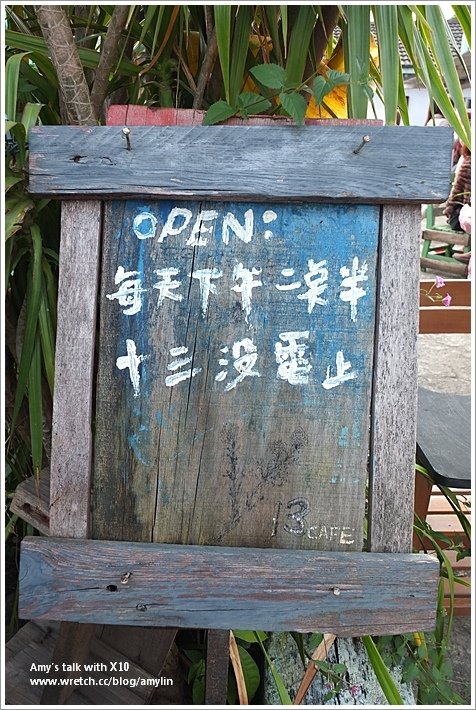 OPEN:
每天下午二點半
十二沒電止
13 CAFE
Amy's talk with X10
www.wretch.cc/blog/amylin